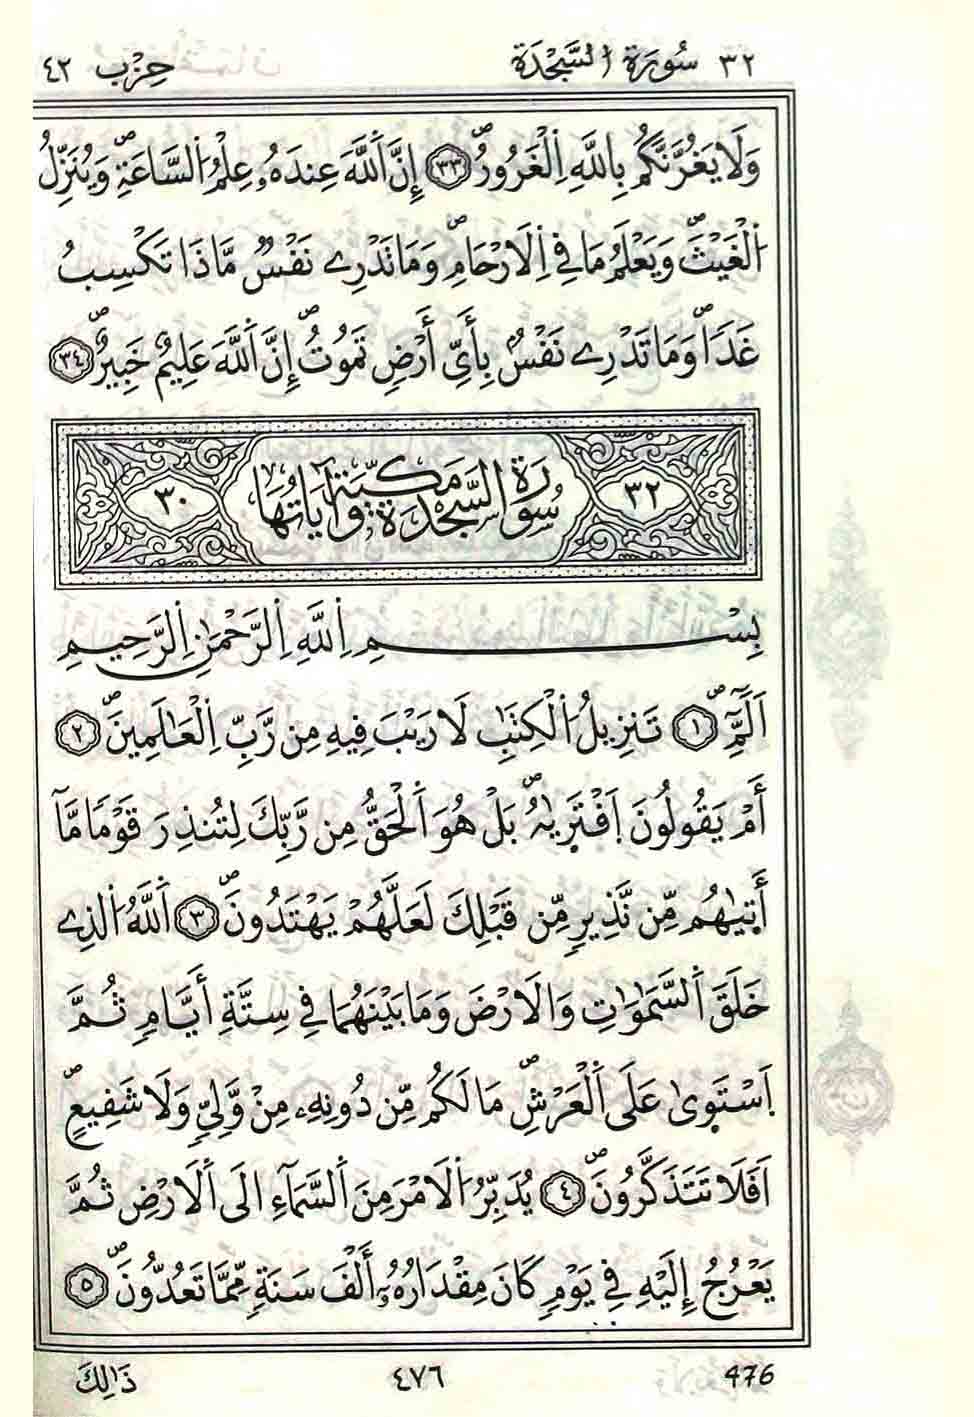 ٣٢ سُورَةُ السَّجْدَةِ حِزْب ٤٢
وَلَا يَغُرَّنَّكُم بِاللَّهِ اِ۬لْغَرُورُۖ ٣٣ إِنَّ اَ۬للَّهَ عِندَهُۥ عِلْمُ اُ۬لسَّاعَةِۖ وَيُنَزِّلُ
اُ۬لْغَيْثَۖ وَيَعْلَمُ مَا فِے اِ۬لَارْحَامِۖ وَمَا تَدْرِے نَفْسٞ مَّاذَا تَكْسِبُ
غَداٗۖ وَمَا تَدْرِے نَفْسُۢ بِأَيِّ أَرْضٖ تَمُوتُۖ إِنَّ اَ۬للَّهَ عَلِيمٌ خَبِيرٞۖ ٣٤
٣٢ سُورَةُ السَّجْدَةِ مَكِّيَّة وَآيَاتُهَا ٣٠
بِسْمِ اِ۬للَّهِ اِ۬لرَّحْمَٰنِ اِ۬لرَّحِيمِ
أَلَٓمِّٓۖ ١ تَنزِيلُ اُ۬لْكِتَٰبِ لَا رَيْبَ فِيهِ مِن رَّبِّ اِ۬لْعَٰلَمِينَۖ ٢
أَمْ يَقُولُونَ اَ۪فْتَر۪يٰهُۖ بَلْ هُوَ اَ۬لْحَقُّ مِن رَّبِّكَ لِتُنذِرَ قَوْماٗ مَّآ
أَت۪يٰهُم مِّن نَّذِيرٖ مِّن قَبْلِكَ لَعَلَّهُمْ يَهْتَدُونَۖ ٣ اَ۬للَّهُ اُ۬لذِے
خَلَقَ اَ۬لسَّمَٰوَٰتِ وَالَارْضَ وَمَا بَيْنَهُمَا فِے سِتَّةِ أَيَّامٖ ثُمَّ
اَ۪سْتَو۪يٰ عَلَى اَ۬لْعَرْشِۖ مَا لَكُم مِّن دُونِهِۦ مِنْ وَّلِيّٖ وَلَا شَفِيعٍۖ
اَفَلَا تَتَذَكَّرُونَۖ ٤ يُدَبِّرُ اُ۬لَامْرَ مِنَ اَ۬لسَّمَآءِ الَى اَ۬لَارْضِ ثُمَّ
يَعْرُجُ إِلَيْهِ فِے يَوْمٖ كَانَ مِقْدَارُهُۥٓ أَلْفَ سَنَةٖ مِّمَّا تَعُدُّونَۖ ٥
ذَٰلِكَ ٤٧٦ 476